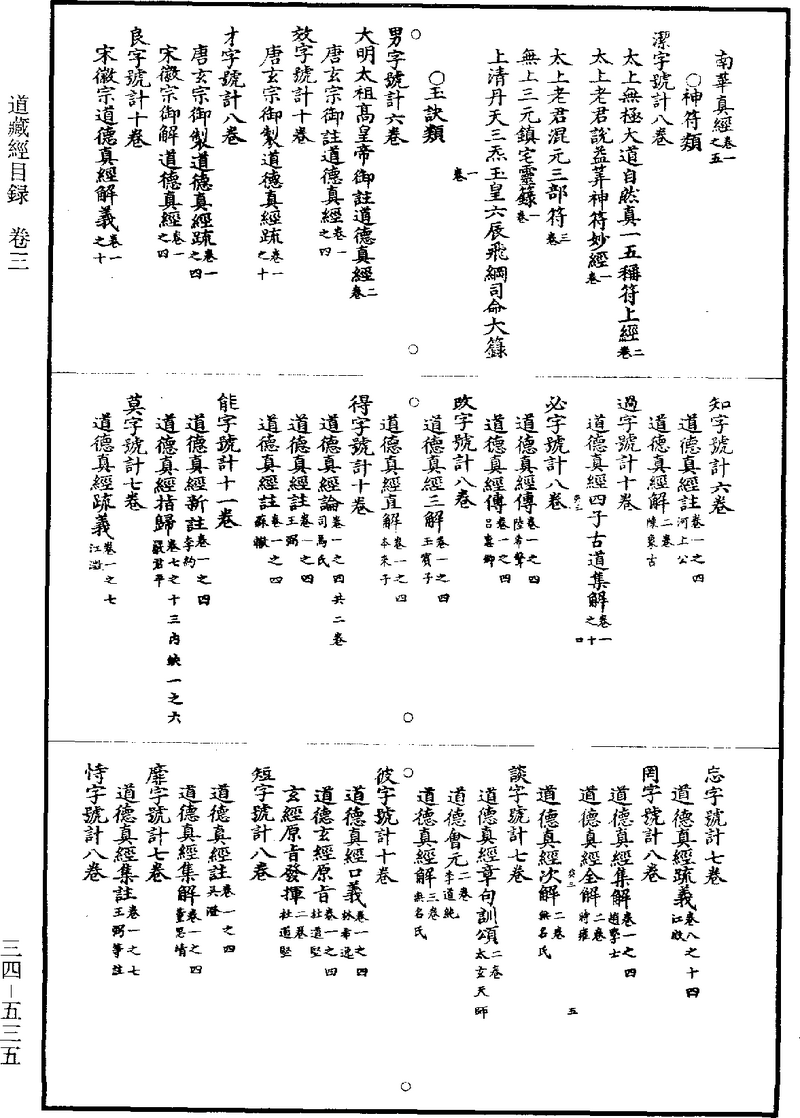 道藏經目録　卷三
南華真經卷一之五
○神符類
潔字號計八卷
太上無極大道自然真一五稱符上經二卷
太上老君說益筭神符妙經一卷
太上老君混元三部符三卷
無上三元鎮宅靈籙一卷
上清丹天三炁玉皇六辰飛綱司命大籙一卷
○玉訣類
男字號計六卷
大明太祖高皇帝御註道德真經二卷
唐玄宗御註道德真經卷一之四
效字號計十卷
唐玄宗御製道德真經疏卷一之十
才字號計八卷
唐玄宗御製道德真經疏卷一之四
宋徽宗御解道德真經卷一之四
良字號計十卷
宋徽宗道德真經解義卷一之十
知字號計六卷
道德真經註卷一之四河上公
道德真經解二卷陳象古
過字號計十卷
道德真經四子古道集解卷一之十
必字號計八卷
道德真經傳卷一之四陸希聲
道德真經傳卷一之四吕惠卿
改字號計八卷
道德真經三解卷一之四玉賓子
道德真經直解卷一之四本來子
得字號計十卷
道德真經論卷一之四共二卷司馬氏
道德真經註卷一之四王弼
道德真經註卷一之四蘇轍
能字號計十一卷
道德真經新註卷一之四李約
道德真經指歸卷七之十三內缺一之六嚴君平
莫字號計七卷
道德真經疏義卷一之七江澂
忘字號計七卷
道德真經疏義卷八之十四江澂
罔字號計八卷
道德真經集解卷一之四趙學士
道德真經全解二卷時雍
道德真經次解二卷無名氏
談字號計七卷
道德真經章句訓頌二卷太玄天師
道德會元二卷李道純
道德真經解三卷無名氏
彼字號計十卷
道德真經口義卷一之四林希逸
道德玄經原旨卷一之四杜道堅
玄經原旨發揮二卷杜道堅
短字號計八卷
道德真經註卷一之四吴澄
道德真經集解卷一之四董思靖
靡字號計七卷
道德真經集註卷一之七王弼等註
恃字號計八卷
三四－五三五